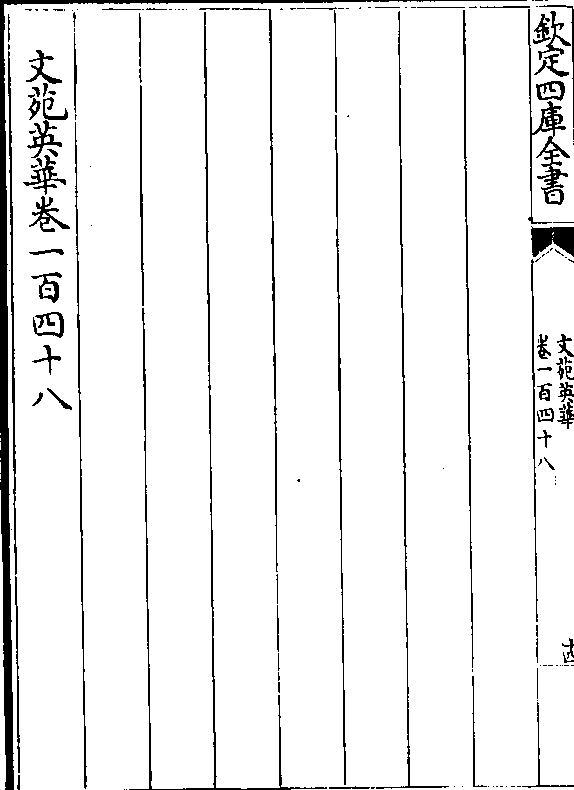 欽定四庫全書
文苑英華
卷一百四十八
十四
文苑英華卷一百四十八